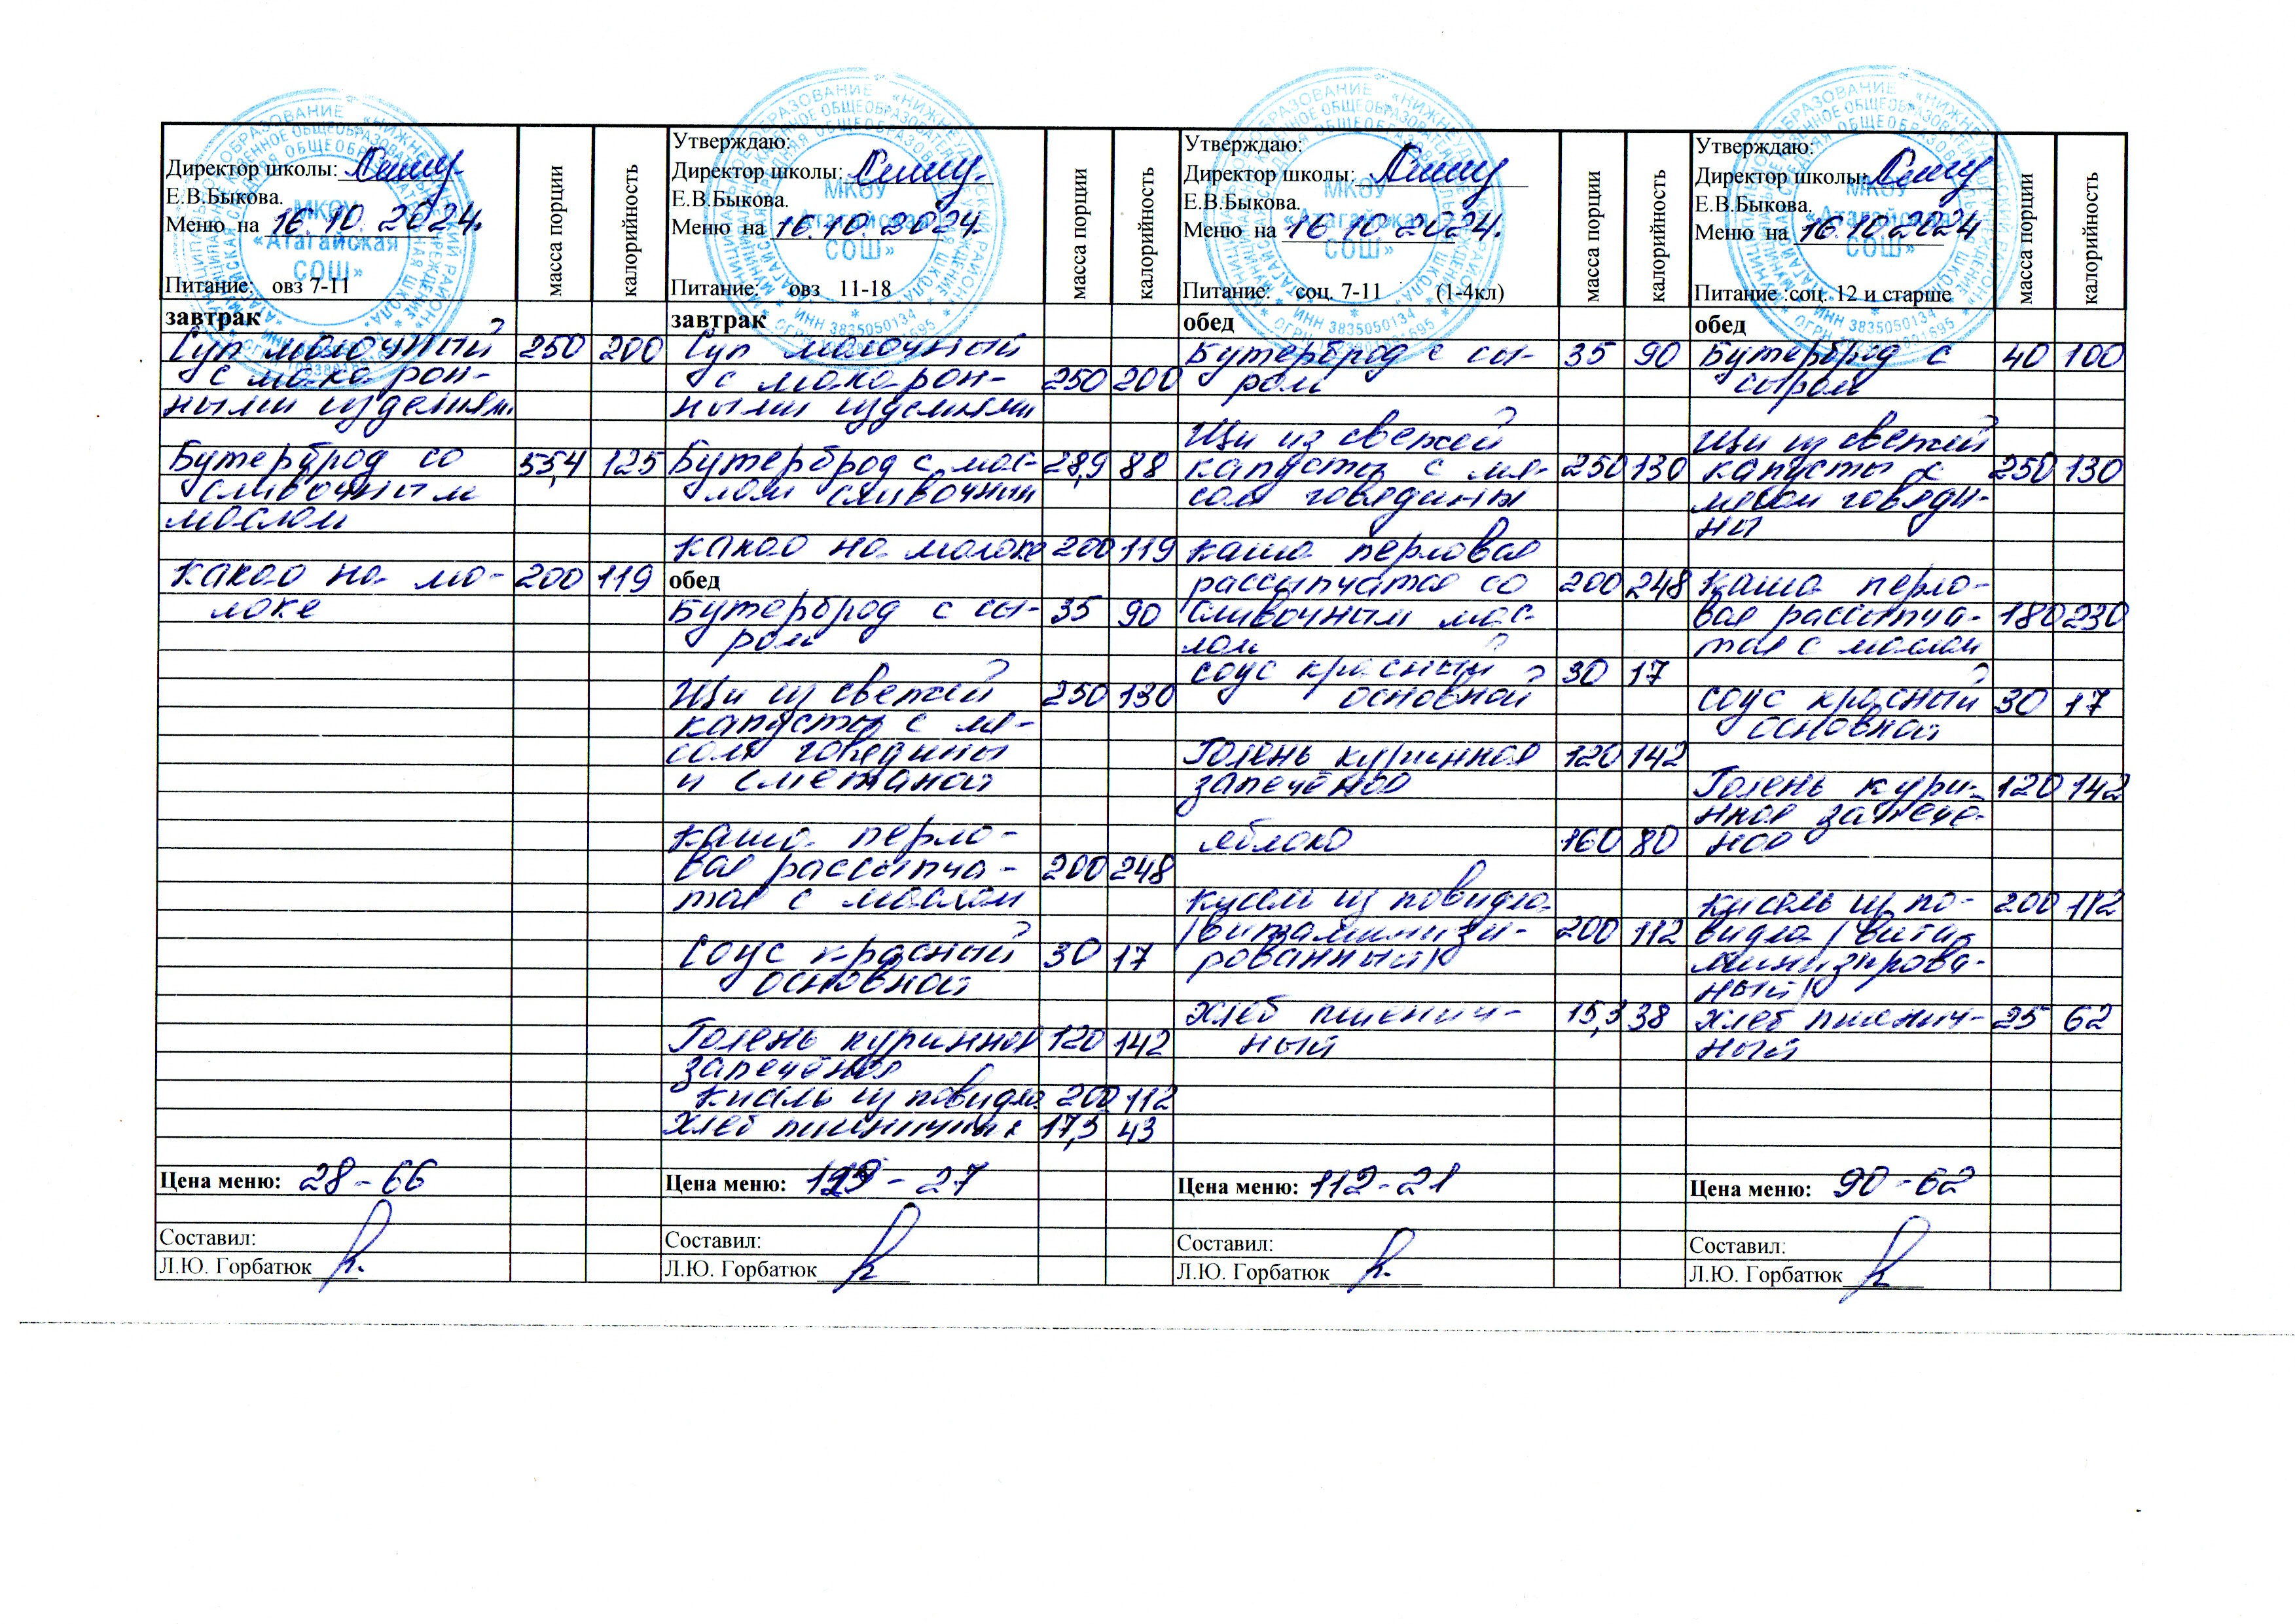 Директор школы:
Е.В.Быкова.
Меню на 16.10.2024.
Питание: овз 7-11
масса порции
калорийность
завтрак
Суп молочный 250 200
с макарон-
ными изделиям.
Бутерброд со 55,4 125
сливочным
маслом
Какао на мо- 200 119
локе
Цена меню: 28-66
Составил:
Л.Ю. Горбатюк
Утверждаю:
Директор школы:
Е.В.Быкова.
Меню на 16.10.2024
Питание: овз 11-18
масса порции
калорийность
завтрак
Суп молочный
с макарон- 250 200
ными изделиями
Бутерброд с мас- 28,9 88
лом сливочным
какао на молоке 200 119
обед
Бутерброд с сы- 35 90
ром
Щи из свежей 250 130
капусты с мя-
сом говядины
и сметаной
каша перло-
вая рассыпча- 200 248
тая с маслом
Соус красный 30 17
основной
Голень куринная 120 142
запечёная
Кисель из повидла 200 112
Хлеб 17,3 43
Цена меню: - 27
Составил:
Л.Ю. Горбатюк
Утверждаю:
Директор школы:
Е.В.Быкова.
Меню на 16.10.2024.
Питание: соц. 7-11 (1-4кл)
масса порции
калорийность
обед
Бутерброд с сы- 35 90
ром
Щи из свежей
капусты с мя- 250 130
сом говядины
каша перловая
рассыпчатая со 200 248
сливочным мас-
лом
соус красный 30 17
основной
Голень куринная 120 142
запечёная
яблоко 160 80
кисель из повидла
/витаминизи- 200 112
рованный/
хлеб пшенич- 15,3 38
ный
Цена меню: 112-21
Составил:
Л.Ю. Горбатюк
Утверждаю:
Директор школы:
Е.В.Быкова.
Меню на 16.10.2024
Питание :соц. 12 и старше
масса порции
калорийность
обед
Бутерброд с 40 100
сыром
Щи из свежей
капусты с 250 130
мясом говяди-
ны
каша перло-
вая рассыпча- 180 230
тая с маслом
соус красный 30 17
основной
Голень кури- 120 142
нная запечё-
ная
кисель из по- 200 112
видла /вита-
минизирова-
ный/
хлеб пшенич- 25 62
ный
Цена меню: 90-62
Составил:
Л.Ю. Горбатюк
МКОУ
«Атагайская
СОШ»
ИНН 3835050134